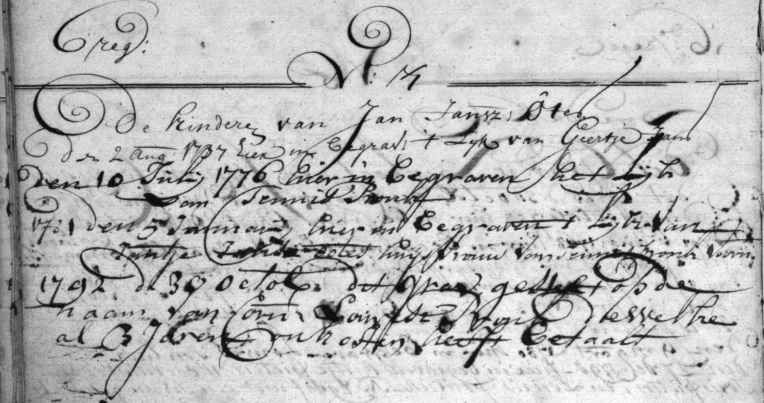 reg:
N: 71
De kinderen van Jan Jansz: Oten
Den 2 Aug 1757 hier in begrave t Lyk van Geertje Jans
den 10 Juny 1776 hier in begraven het Lyk
van Teunis Kronk
den 5 Januarj hier in begraven t Lyk van
Jantje huysvrouw van Teunis Kronk voorn
1792 d 30 Octob: dit graf gestelt op de
naam van Corn: dewelke
al 3 Jaren onkosten heeft betaalt